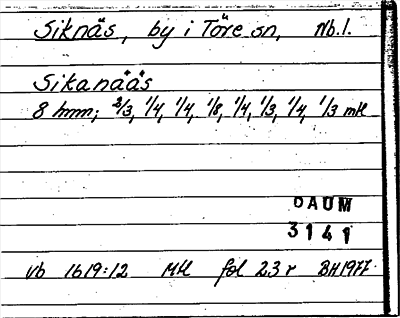 Siknäs, by i Töre sn, Nb.l.
Sikanääs
8 hmn; 2/3, 1/4, 1/4, 1/8, 1/4, 1/3, 1/4, 1/3 mtl
DAUM
3141
vb 1619:12 Mtl fol 23 r BH1977